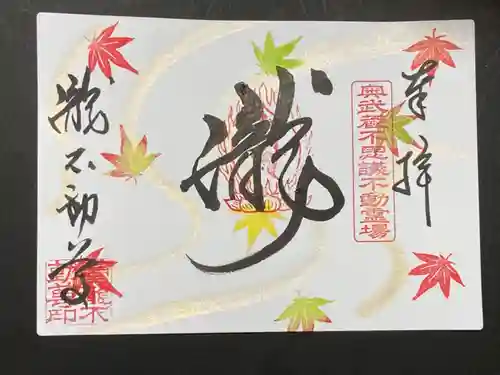 奉拝
奥武蔵不思議不動霊場
瀧
瀧不動尊